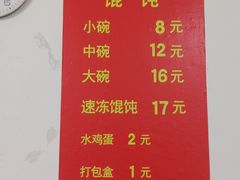 馄饨
小碗 8元
中碗 12元
大碗 16元
速冻馄饨 17元
水鸡蛋 2元
打包盒 1元